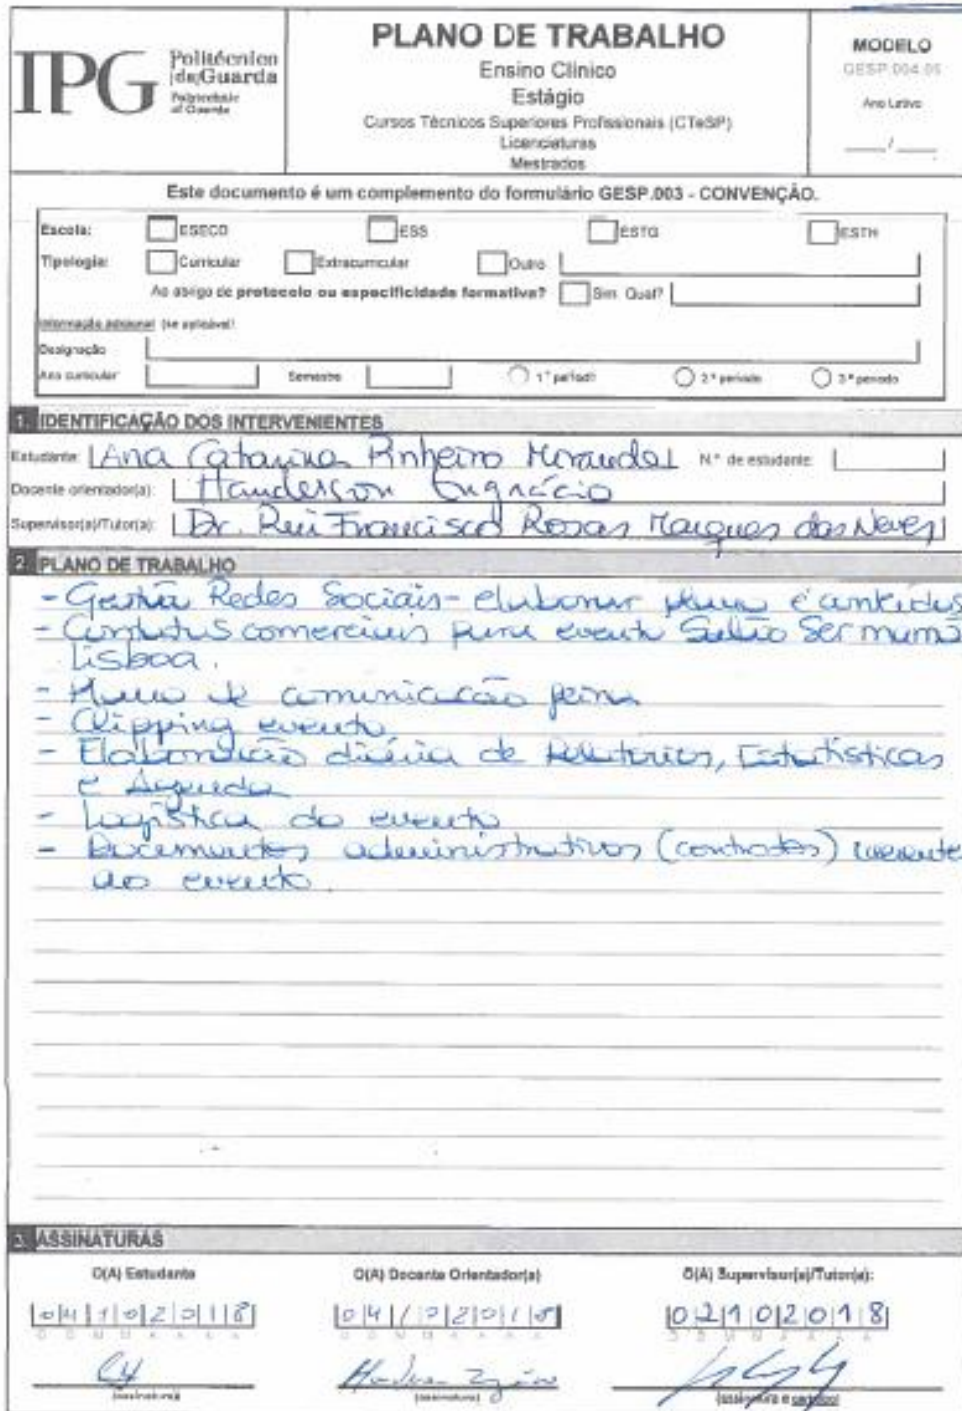 IPG Politécnico da Guarda
Polytechnic of Guarda
PLANO DE TRABALHO
Ensino Clínico
Estágio
Cursos Técnicos Superiores Profissionais (CTeSP)
Licenciaturas
Mestrados
MODELO
GESP.004.05
Ano Letivo
___/___
Este documento é um complemento do formulário GESP.003 - CONVENÇÃO.
Escola: ESECD ESS ESTG ESTH
Tipologia: Curricular Extracurricular Outro
Ao abrigo de protocolo ou especificidade formativa? Sim. Qual?
Informação adicional (se aplicável):
Designação
Ano curricular Semestre 1º período 2º período 3º período
1. IDENTIFICAÇÃO DOS INTERVENIENTES
Estudante: Ana Catarina Pinheiro Miranda N.º de estudante:
Docente orientador(a): Handerson
Supervisor(a)/Tutor(a): Dr. Rui Francisco Rosas Marques das Neves
2. PLANO DE TRABALHO
- Gestão Redes Sociais - elaborar plano e conteúdos
- Contatos comerciais para evento Salão Ser mamã
Lisboa.
- Plano de comunicação feira
- Clipping evento
- Elaboração diária de Relatórios, Estatísticas
e Agenda
- Logística do evento
- Documentos administrativos (contratos)
ao evento.
3. ASSINATURAS
O(A) Estudante O(A) Docente Orientador(a) O(A) Supervisor(a)/Tutor(a):
04102018 04102018 02102018
D D M M A A A A D D M M A A A A D D M M A A A A
(assinatura) (assinatura) (assinatura e carimbo)